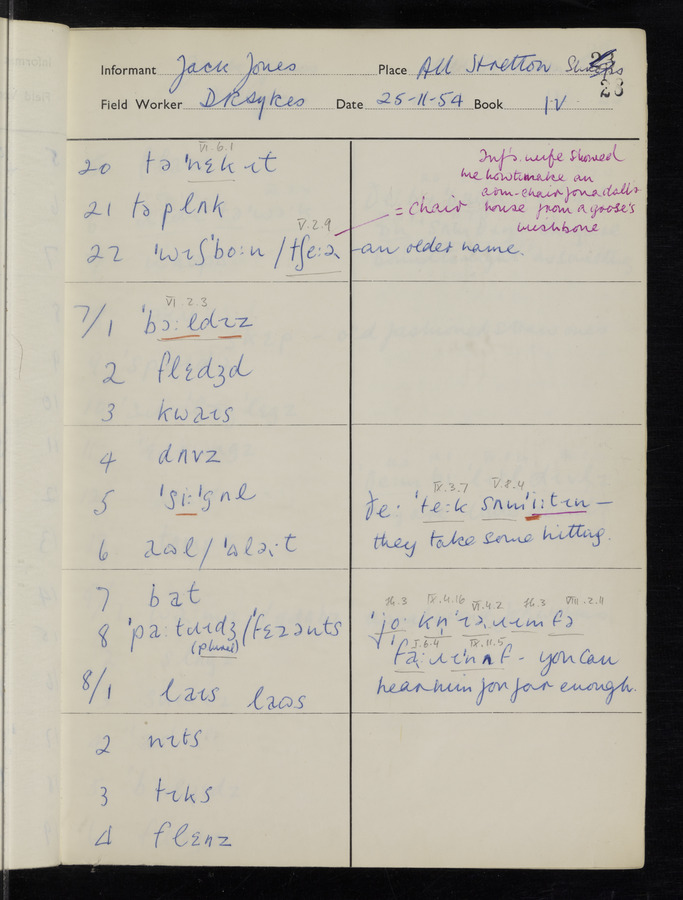 Informant Jack Jones Place All Stretton
Field Worker DRSykes Date 25-11-54 Book IV
23
VI.6.1
20 tə ˈnɛk ɪt
21 tə plʌk
V.2.9
22 ˈwɪʃˈboːn / tʃeːə - an older name.
= chair
Inf's. wife showed
me how to make an
arm-chair for a doll's
house from a goose's
wishbone
VI.2.3
7/1 ˈbɔːldɪz
2 flɛdʒd
3 kwaɪs
4 dʌvz
5 ˈsiːˈgʌl
6 / ˈ
IX.3.7 V.8.4
ˈteːk sʌm
they take some hitting.
7 bat
8 ˈpaːtɹɪdʒ / ˈfɛzənts
(plural)
IX.4.16 VI.4.2 VIII.2.11
I.6.4 IX.11.5
- you can
hear him for far enough.
8/1 laɪs laʊs
2 nɪts
3 tɪks
4 flɛnz